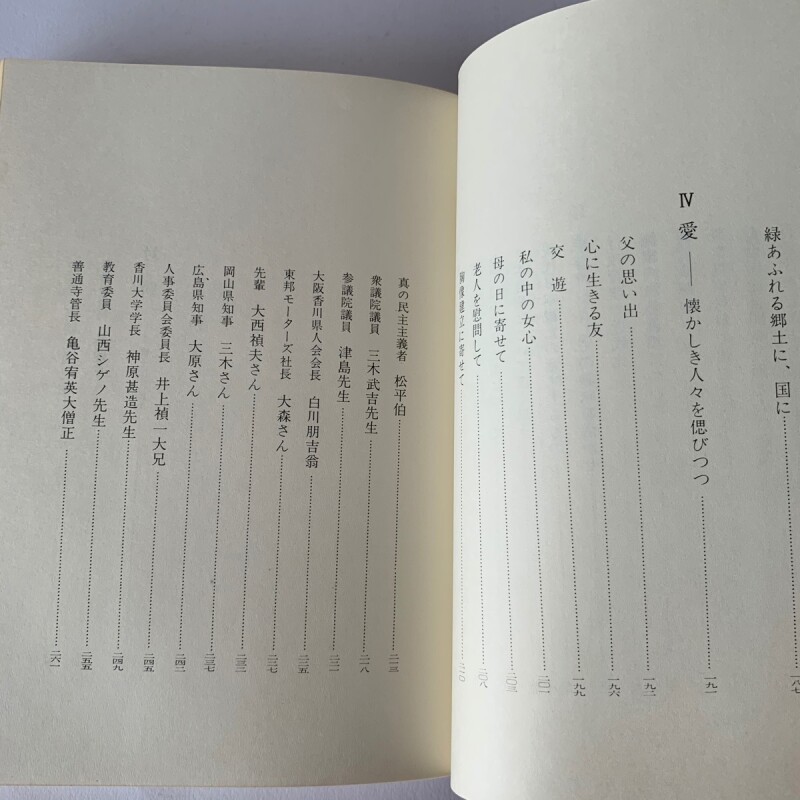 緑あふれる郷土に、国に……一八七
Ⅳ 愛 —— 懐かしき人々を偲びつつ……一九一
父の思い出……一九二
心に生きる友……一九六
交遊……一九九
私の中の女心……二〇一
母の日に寄せて……二〇三
老人を慰問して……二〇八
胸像建立に寄せて……二一〇
真の民主主義者 松平伯……二一三
衆議院議員 三木武吉先生……二一八
参議院議員 津島先生……二二一
大阪香川県人会会長 白川朋吉翁……二二五
東邦モーターズ社長 大森さん……二二七
先輩 大西禎夫さん……二三二
岡山県知事 三木さん……二三七
広島県知事 大原さん……二四二
人事委員会委員長 井上禎一大兄……二四五
香川大学学長 神原甚造先生……二四九
教育委員 山西シゲノ先生……二五五
善通寺管長 亀谷宥英大僧正……二六一